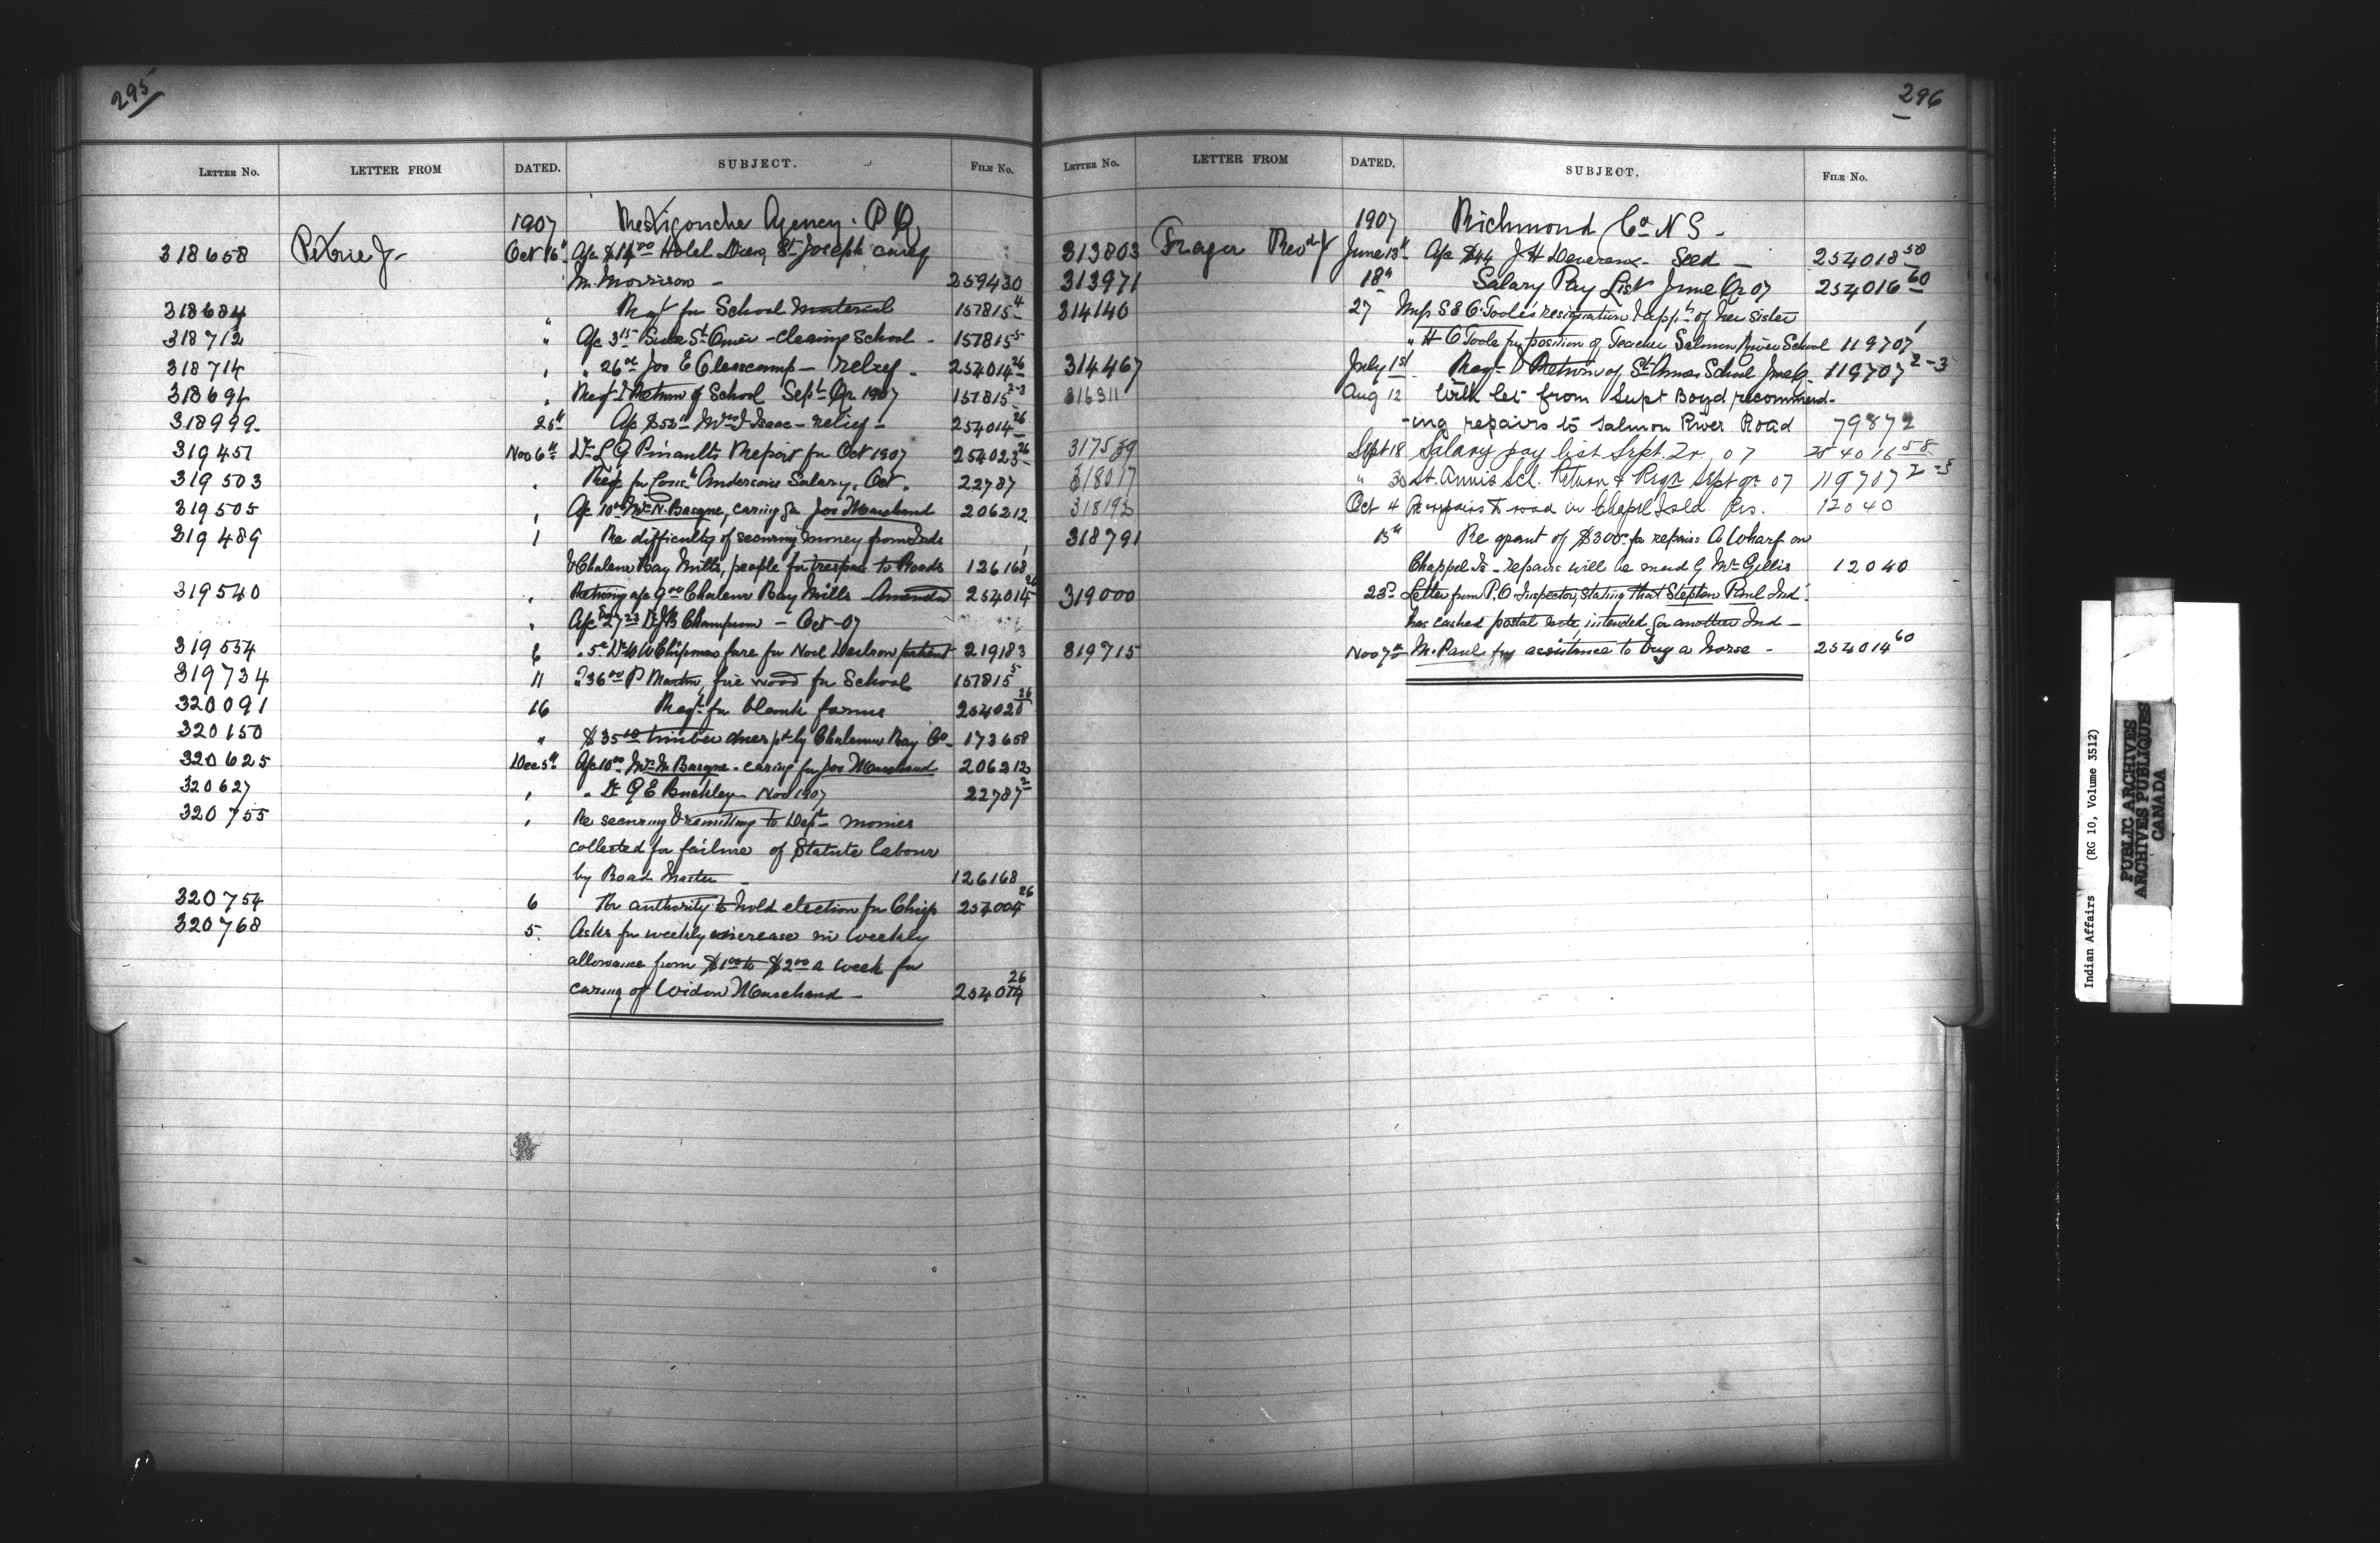 295
LETTER NO. LETTER FROM DATED. SUBJECT. FILE NO.
1907 Restigouche Agency. P Q
318658 Petrie J- Oct 16th A/c $14.00 Hotel Dieu, St Joseph care of
M. Morrison - 259430
318684 " Reqt for School material 157815 4
318712 " A/c 3 15 St Omer - cleaning School - 157815 5
318714 " " 26 00 Jos E Clearcamp - relief - 254014 26
318694 " Reqt & Return of School Sept Qr 1907 157815 2-3
318999 25th A/c $52 Mrs J. Isaac - relief - 254014 26
319451 Nov 6th Dr L G Pinaults Report for Oct 1907 254023 26
319503 " Reqt for Cons. Andersons Salary. Oct. 22787
319505 " A/c 10 00 Mrs N. Basque, caring for Jos Marchand 206212
319489 " Re difficulty of securing money from Inds
& Chaleur Bay Mills, people for trespass to Roads 126168
319540 " Returning a/c 9 00 Chaleur Bay Mills Amended 254014 26
" A/c $27 23 Dr J B Champion - Oct-07
319554 8 " 5 00 Dr W W Chipman fare for Noel patient 219183
319734 11 " 36 00 P Martin, fire wood for School 157815 5
320091 16 Reqt for blank forms 254020 26
320150 " $35 10 timber dues pd by Chaleur Bay Co - 173658
320625 Dec 5th A/c 10 00 Mrs N Basque - caring for Jos Marchand 206212
320627 " " Dr G E Buckley Nov 1907 22787 2
320755 " Re securing & remitting to Dept monies
collected for failure of Statute labour
by Road Master - 126168
320754 6 For authority to hold election for Chief 254004 26
320768 5. Asks for weekly increase in weekly
allowance from $1 00 to $2 00 a week for
caring of Widow Marchand - 254014 26
296
LETTER NO. LETTER FROM DATED. SUBJECT. FILE NO.
1907 Richmond Co N S -
313803 Fraser Revd J June 13th A/c $44 J H Devereux - Seed - 254018 58
313971 18th Salary Pay List June Qr 07 254016 60
314140 27 Miss S E O'Toole's resignation & appn of her sister
" H O'Toole for position of Teacher Salmon River School 119707 1
314467 July 1st Reqt & Return of St Annes School June Qr. 119707 2-3
316311 Aug 12 With let from Supt Boyd recommend-
-ing repairs to Salmon River Road 79872
317539 Sept 18 Salary pay list Sept. Qr. 07 254016 58
318017 " 30 St. Annis Sch. Return & Reqn Sept qr 07 119707 2-3
318192 Oct 4 Re repairs to road in Chapel Isld Res. 12040
318791 15th Re grant of $300 for repairs & Wharf on
Chappel Is - repairs will be made by McGillis 12040
319000 23d Letter from P.O. Inspector, stating that Stephen Paul Ind.
has cashed postal note, intended for another Ind -
319715 Nov 7th M. Paul for assistance to buy a horse - 254014 60
Indian Affairs (RG 10, Volume 3512)
PUBLIC ARCHIVES
ARCHIVES PUBLIQUES
CANADA